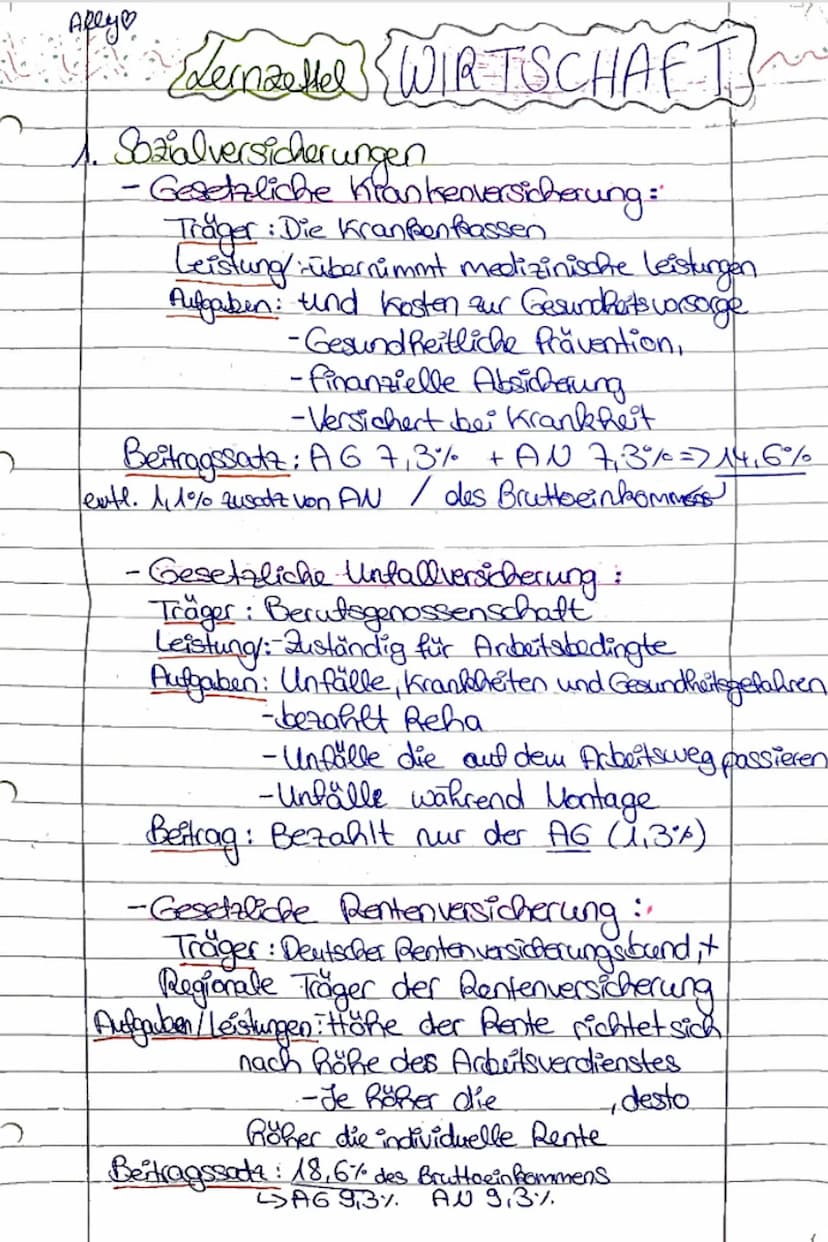 Ally♡
Lernzettel WIRTSCHAFT
1. Sozialversicherungen
- Gesetzliche Krankenversicherung:
Träger: Die Krankenkassen
Leistung/-übernimmt medizinische Leistungen
Aufgaben: und Kosten zur Gesundheitsvorsorge
- Gesundheitliche Prävention,
- finanzielle Absicherung
- Versichert bei Krankheit
Beitragssatz: AG 7,3% + AN 7,3% => 14,6%
evtl. 1,1% zusatz von AN / des Bruttoeinkommens
- Gesetzliche Unfallversicherung:
Träger: Berufsgenossenschaft
Leistung/:-Zuständig für Arbeitsbedingte
Aufgaben: Unfälle, Krankheiten und Gesundheitsgefahren
- bezahlt Reha
- Unfälle die auf dem Arbeitsweg passieren
- Unfälle während Montage
Beitrag: Bezahlt nur der AG (1,3%)
- Gesetzliche Rentenversicherung:
Träger: Deutscher Rentenversicherungsbund, +
Regionale Träger der Rentenversicherung
Aufgaben/Leistungen:-Höhe der Rente richtet sich
nach höhe des Arbeitsverdienstes
- Je höher die , desto
höher die individuelle Rente
Beitragssatz: 18,6% des Bruttoeinkommens
↳ AG 9,3% AN 9,3%